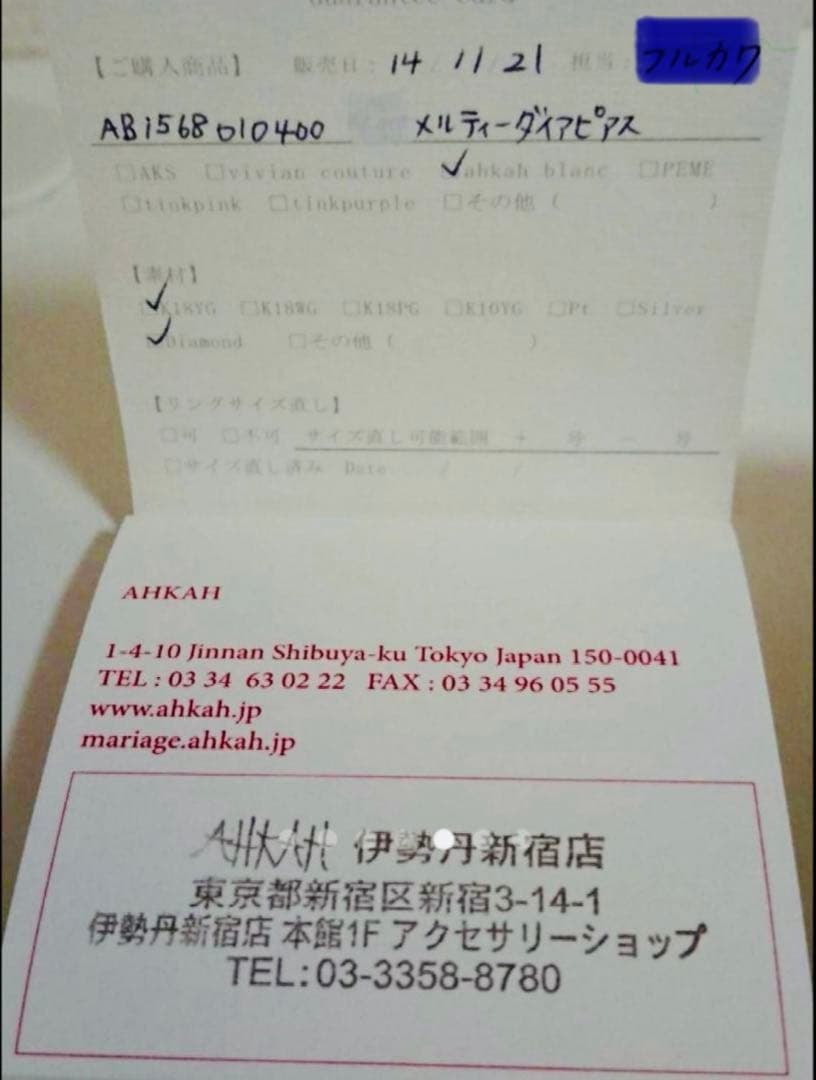 Guarantee Card
【ご購入商品】 販売日: 14 / 11 / 21 担当: フルカワ
AB1568010400 メルティーダイアピアス
□AKS □vivian couture ✓ahkah blanc □PEME
□tinkpink □tinkpurple □その他 ( )
【素材】
✓K18YG □K18WG □K18PG □K10YG □Pt □Silver
✓Diamond □その他 ( )
【リングサイズ直し】
□可 □不可 サイズ直し可能範囲 + 号 - 号
□サイズ直し済み Date / /
AHKAH
1-4-10 Jinnan Shibuya-ku Tokyo Japan 150-0041
TEL : 03 34 63 02 22 FAX : 03 34 96 05 55
www.ahkah.jp
mariage.ahkah.jp
AHKAH 伊勢丹新宿店
東京都新宿区新宿3-14-1
伊勢丹新宿店 本館1F アクセサリーショップ
TEL:03-3358-8780